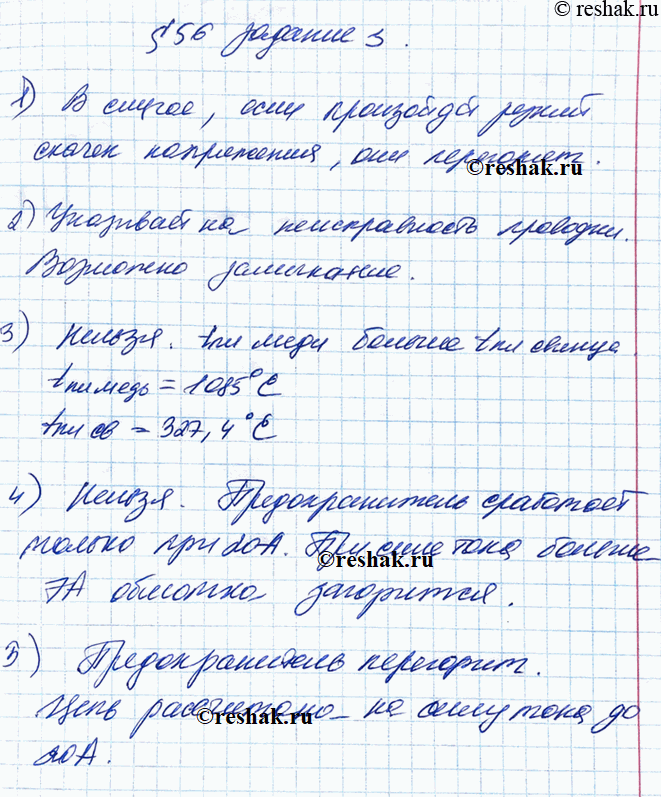 © reshak.ru
§56 задание 3.
1) В случае, если произойдёт резкий
скачек напряжения, они перегорят.
© reshak.ru
2) Указывает на неисправность проводки.
Возможно замыкание.
3) Нельзя. tпл меди больше tпл свинца.
tпл медь = 1085°C
tпл св = 327,4°C
4) Нельзя. Предохранитель сработает
только при 20А. При силе тока больше
© reshak.ru
7А обмотка загорится.
5) Предохранитель перегорит.
Цепь рассчитана на силу тока до
© reshak.ru
20А.